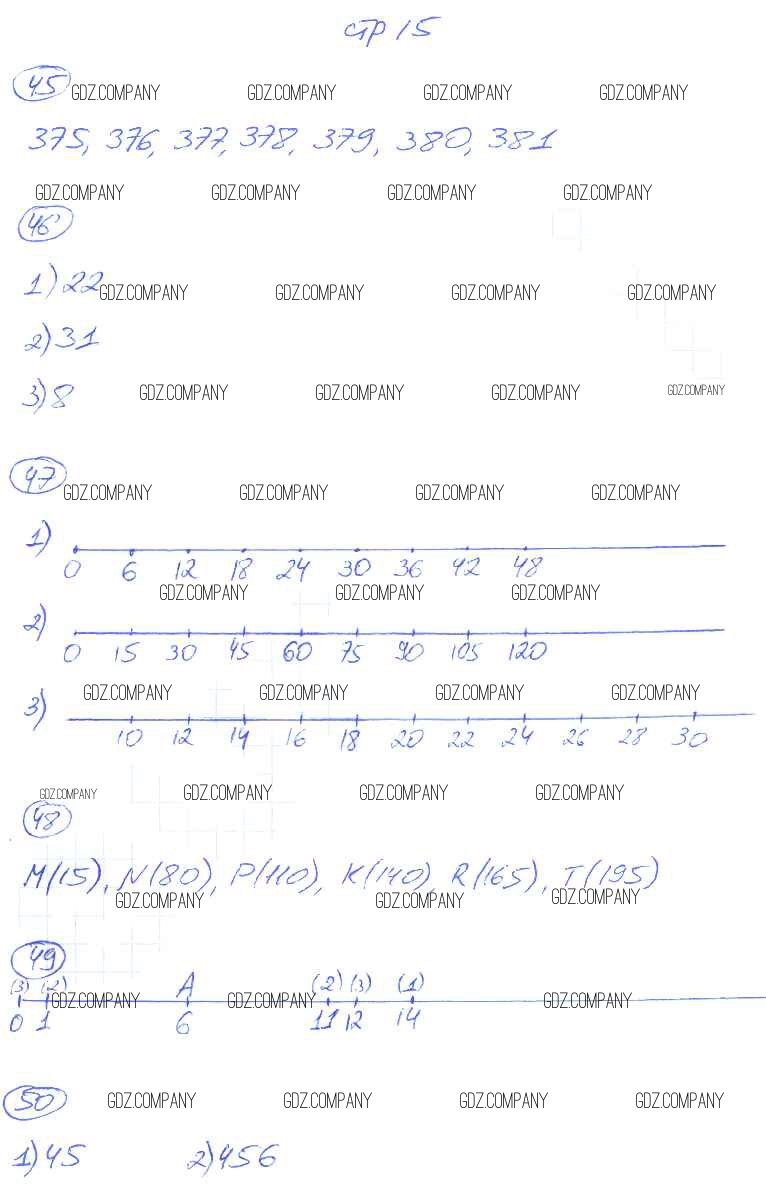 стр 15
45 GDZ.COMPANY GDZ.COMPANY GDZ.COMPANY GDZ.COMPANY
375, 376, 377, 378, 379, 380, 381
GDZ.COMPANY GDZ.COMPANY GDZ.COMPANY GDZ.COMPANY
46
1) 22 GDZ.COMPANY GDZ.COMPANY GDZ.COMPANY GDZ.COMPANY
2) 31
3) 8 GDZ.COMPANY GDZ.COMPANY GDZ.COMPANY GDZ.COMPANY
47 GDZ.COMPANY GDZ.COMPANY GDZ.COMPANY GDZ.COMPANY
1)
0 6 12 18 24 30 36 42 48
GDZ.COMPANY GDZ.COMPANY GDZ.COMPANY
2)
0 15 30 45 60 75 90 105 120
GDZ.COMPANY GDZ.COMPANY GDZ.COMPANY GDZ.COMPANY
3)
10 12 14 16 18 20 22 24 26 28 30
GDZ.COMPANY GDZ.COMPANY GDZ.COMPANY GDZ.COMPANY
48
M(15), N(80), P(110), K(140), R(165), T(195)
GDZ.COMPANY GDZ.COMPANY GDZ.COMPANY
49
(3) (2) A (2) (3) (1)
GDZ.COMPANY GDZ.COMPANY GDZ.COMPANY
0 1 6 11 12 14
50 GDZ.COMPANY GDZ.COMPANY GDZ.COMPANY GDZ.COMPANY
1) 45 2) 456